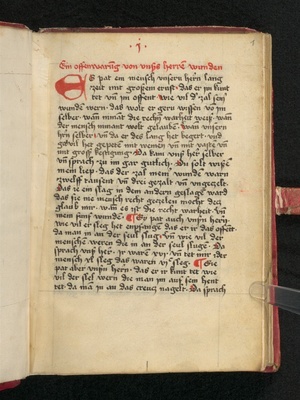 · 1 ·
Ein offenwarūg von vnsṡ herrē wunden
ES pat ein mensch vnsern hern lang
zeit mit großem ernst · das er im kunt
tet vn̄ im offent wie vil d' zal sein'
wunde wern · das wolt er gern wissen vō im
selber · wān nimant die recht warheit weiß · wān
der mensch nimant wolt gelaubē · wan vnsern
hrn selber · vn̄ da er des lang het begert · vn̄
vil het gepetē mit weinen vn̄ mit vastē vn̄
mit groß kestigung · Da kam vnß her selber
vn̄ sprach zu im gar gutlich · Du solt wißē
mein liep · das der zal mein wunde warn
zwelf tausent vn̄ drei gezalt vn̄ ungezelt ·
Das ie ein slag in den andern geslagē ward
das sie nie mensch recht gezelen mocht des
glaub mir · wān es ist die recht warheit vō
mein funf wundē · So pat auch vnsn herrē
wie vil er sleg het enpfangē das er ir das offent
da man in an der seul slug · vn̄ wie vil der
menschē weren die in an der seul slugē · Da
sprach vnß her · ir warē xvj · vn̄ tet mir ider
mensch xl sleg das waren vj sleg · Sie
pat aber vnsn hern · das er ir kunt tet wie
vil der sleg wern die man im auf sein hent
tet da mā in an das creucz nagelt · Da sprach